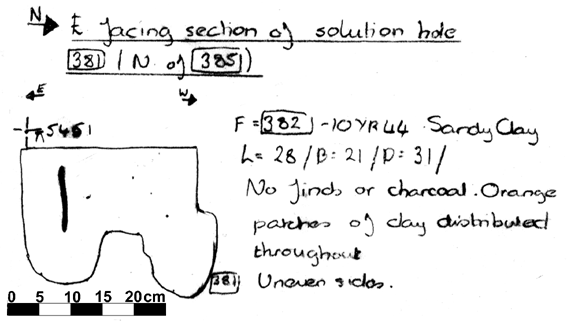 N E facing section of solution hole
381 (N of 385)
E W
5451
F = 382 - 10YR44 Sandy Clay
L= 28 / B= 21 / D= 31 /
No finds or charcoal. Orange
patches of clay distributed
throughout
381 Uneven sides.
0 5 10 15 20cm